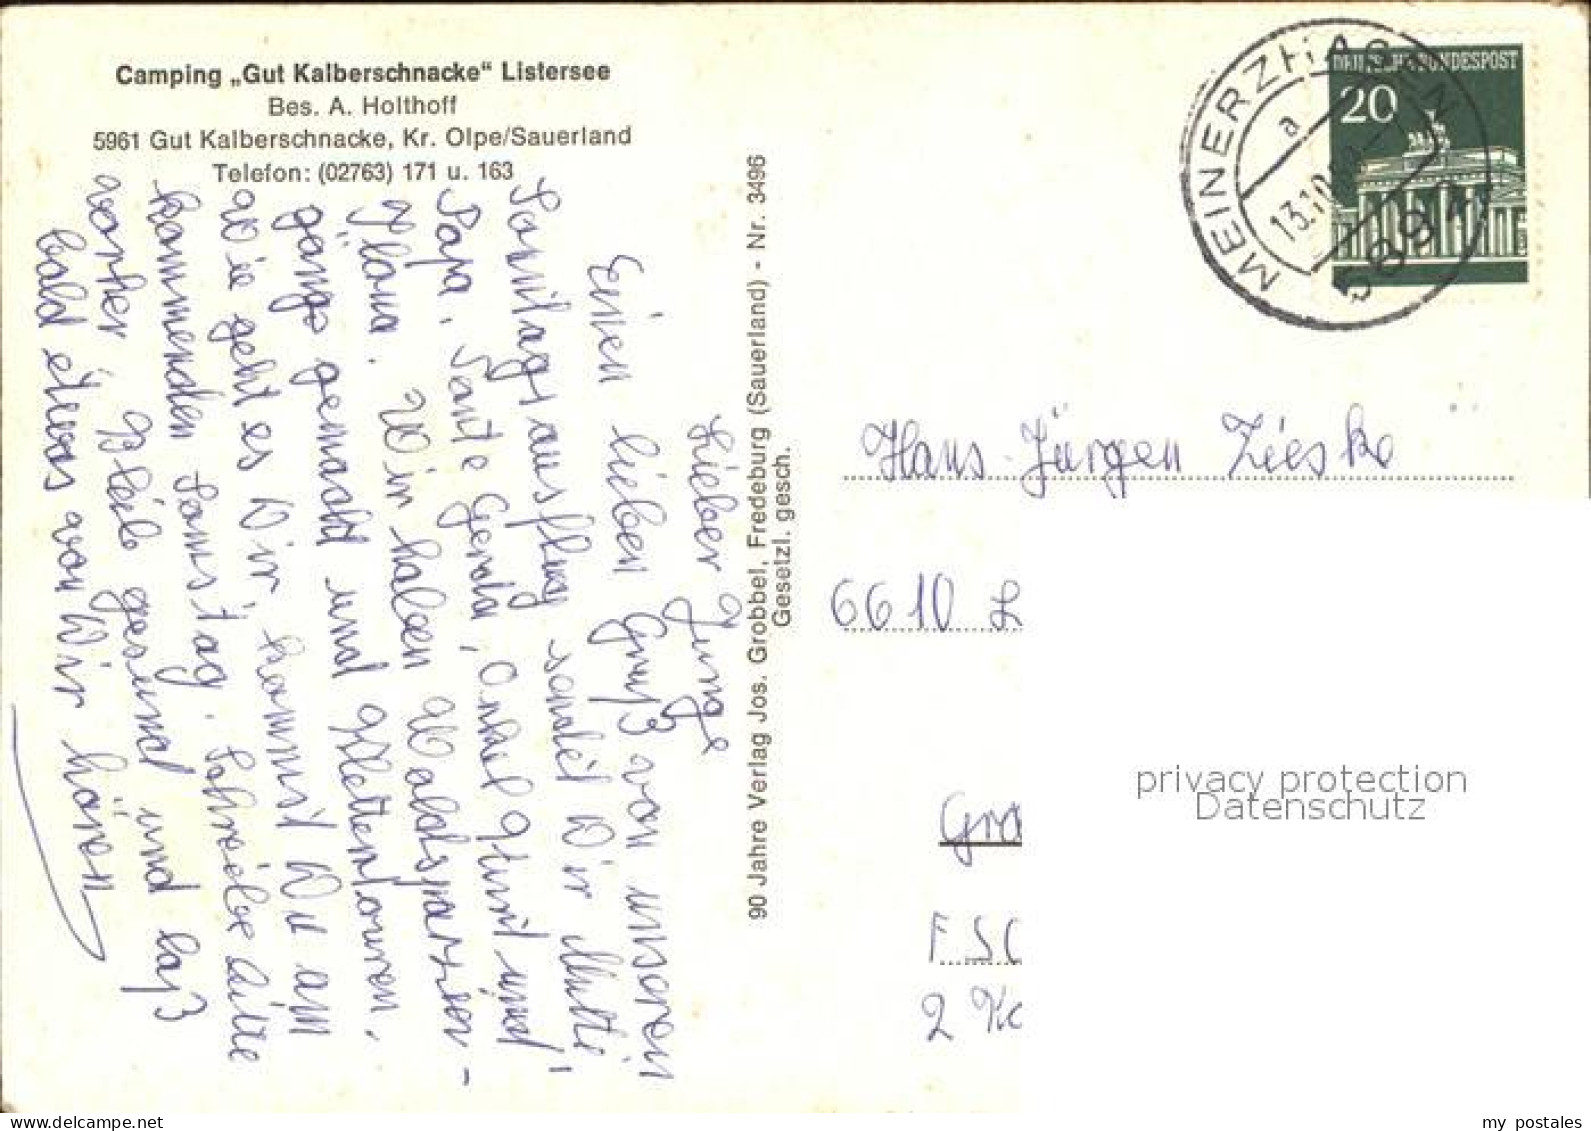 Camping „Gut Kalberschnacke“ Listersee
Bes. A. Holthoff
5961 Gut Kalberschnacke, Kr. Olpe/Sauerland
Telefon: (02763) 171 u. 163
Lieber Junge
Einen lieben Gruß von unseren
Sonntagsausflug sendet Dir Mutti,
Papa, Tante Gerda, Onkel Günt und
Ilona. Wir haben Waldspazier-
gänge gemacht und Klettertouren.
Wie geht es Dir, kommst Du am
kommenden Samstag. Schreibe bitte
vorher. Bleib gesund und laß
bald etwas von Dir hören
90 Jahre Verlag Jos. Grobbel, Fredeburg (Sauerland) - Nr. 3496
Gesetzl. gesch.
MEINERZHAGEN
a
13.10.
589
DEUTSCHE BUNDESPOST
20
Hans-Jürgen Zieske
6610 L
Gra
FSC
2 Ko
privacy protection
Datenschutz
my postales